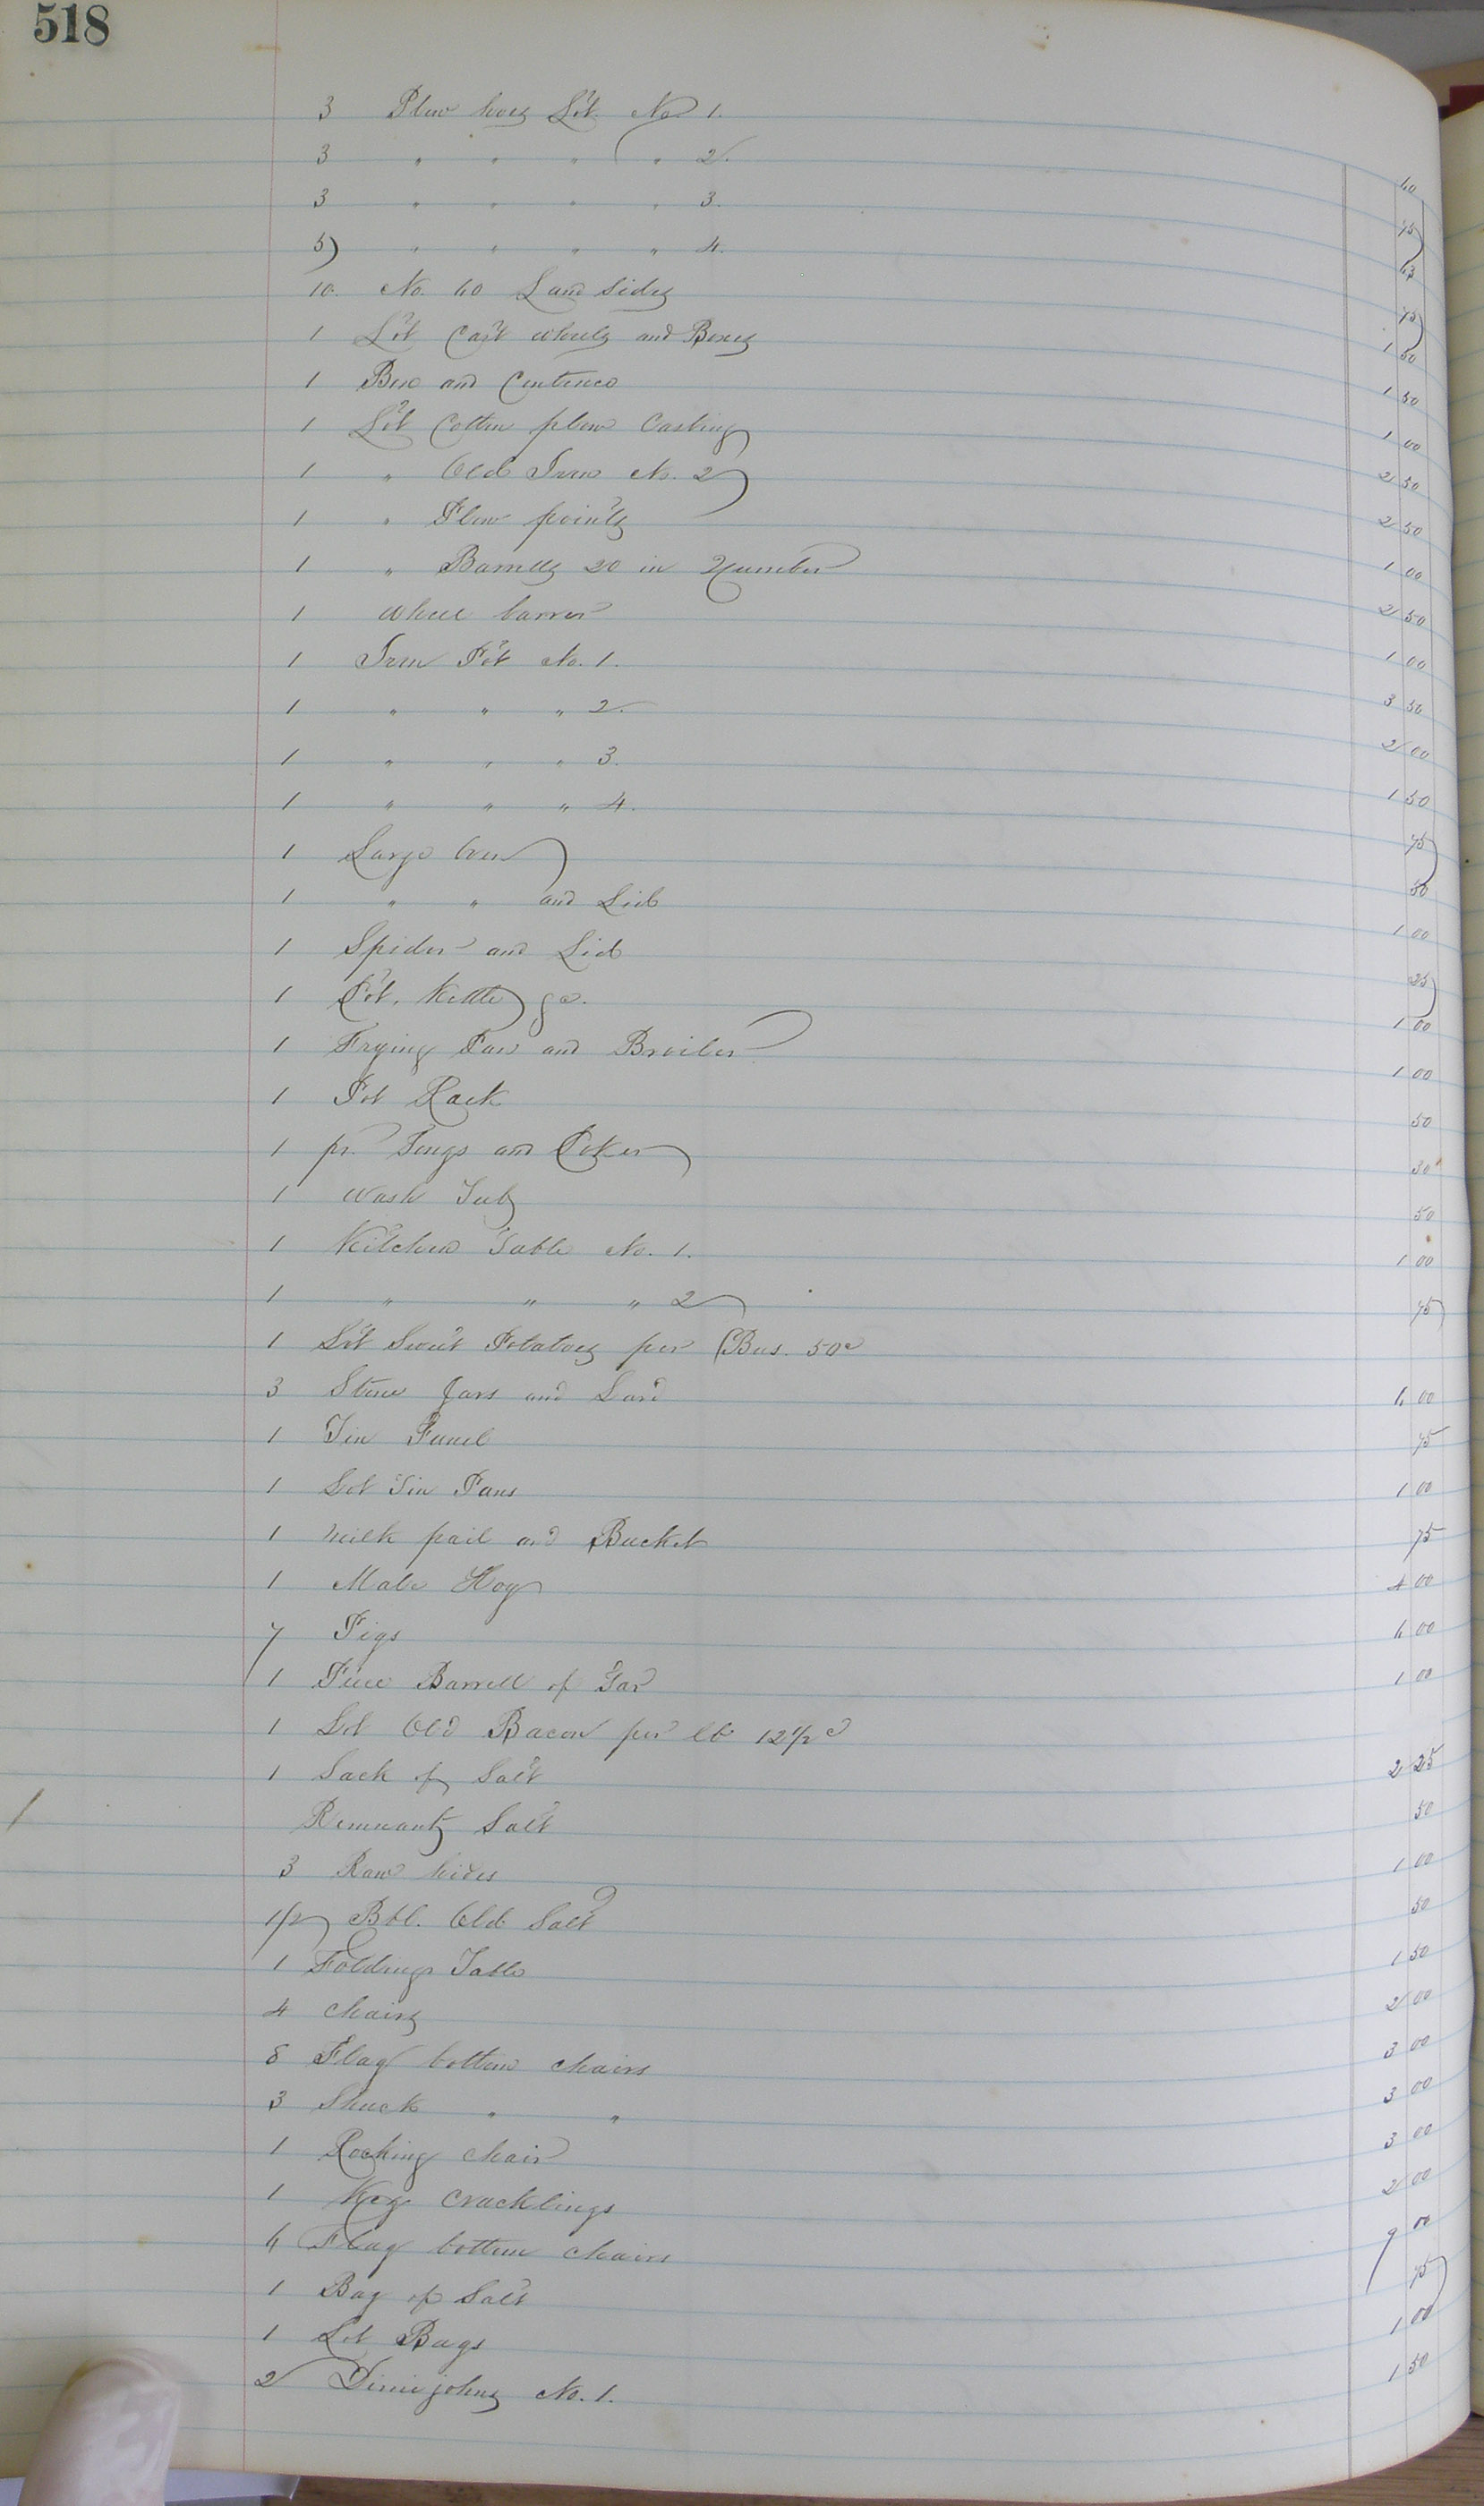 518
3 Plow hoes Lot No 1. 60
3 " " " " 2. 75
3 " " " " 3. 63
5 " " " " 4. 75
10. No. 60 Land sides 1 50
1 Lot Cast wheels and Boxes 1 50
1 Box and Contence 1 00
1 Lot Cotton plow Castings 2 50
1 " Old Iron No. 2 2 50
1 " Plow points 1 00
1 " Barrells 20 in Number 2 50
1 Wheel barrow 1 00
1 Iron Pot No. 1. 3 50
1 " " " 2. 2 00
1 " " " 3. 1 50
1 " " " 4. 75
1 Large Oven 50
1 " " and Lid 1 00
1 Spider and Lid 25
1 Pot, Kettle &c. 1 00
1 Frying Pan and Broiler 1 00
1 Pot Rack 50
1 pr. Tongs and Poker 30
1 Wash Tub 50
1 Kitchen Table No. 1. 1 00
1 " " " 2 75
1 Lot Sweet Potatoes per Bus. 50c
3 Stone Jars and Lard 6 00
1 Tin Funel 75
1 Lot Tin Pans 1 00
1 Milk pail and Bucket 75
1 Male Hog 4 00
7 Pigs 6 00
1 Piece Barrell of Tar 1 00
1 Lot Old Bacon per lb 12 1/2 c
1 Sack of Salt 2 25
Remnants Salt 50
3 Raw hides 1 00
1/2 Bbl. Old Salt 50
1 Folding Table 1 50
4 Chairs 2 00
8 Flag bottom chairs 3 00
3 Shuck " " 3 00
1 Rocking chair 3 00
1 Keg Cracklings 2 00
6 Flag bottom chairs 9 00
1 Bag of Salt 75
1 Lot Bags 1 00
2 Dimijohns No. 1. 1 50